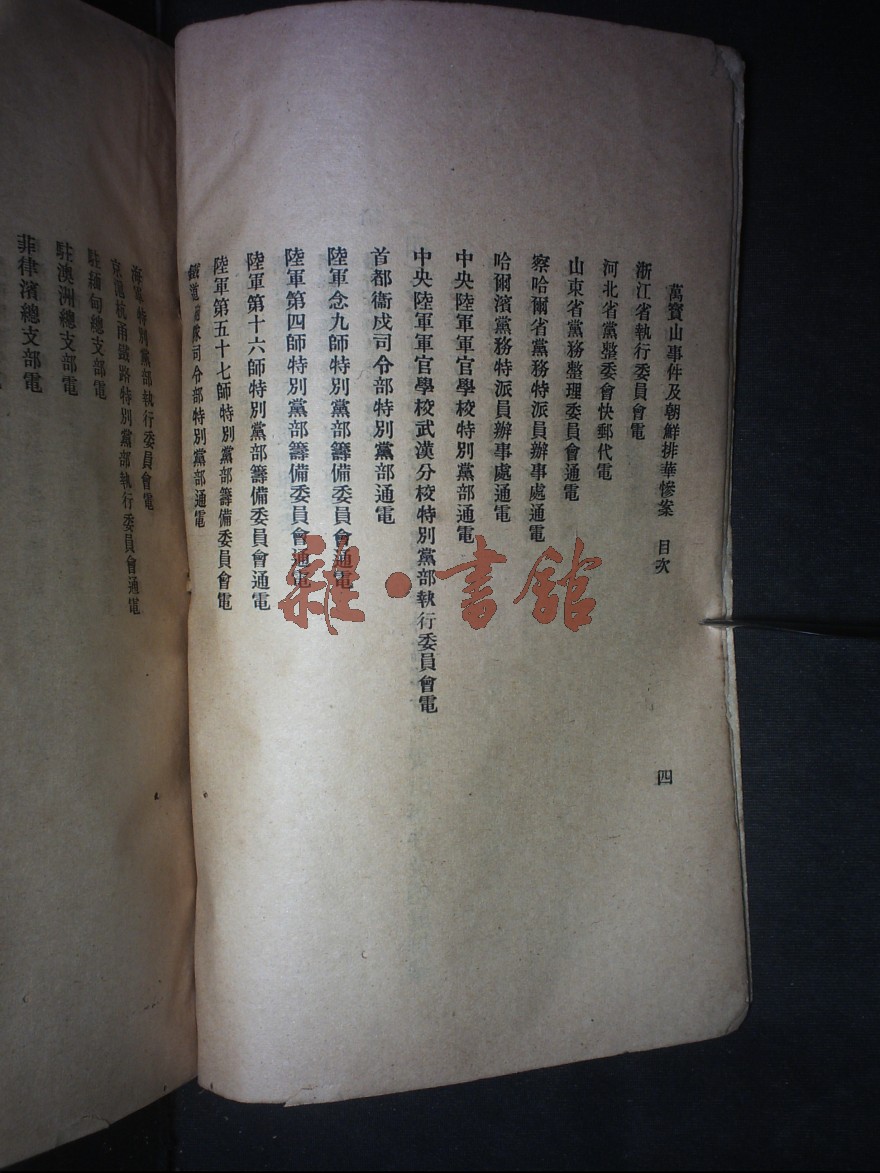 萬寶山事件及朝鮮排華慘案 目次 四
浙江省執行委員會電
河北省黨整委會快郵代電
山東省黨務整理委員會通電
察哈爾省黨務特派員辦事處通電
哈爾濱黨務特派員辦事處通電
中央陸軍軍官學校特別黨部通電
中央陸軍軍官學校武漢分校特別黨部執行委員會電
首都衞戍司令部特別黨部通電
陸軍念九師特別黨部籌備委員會通電
陸軍第四師特別黨部籌備委員會通電
陸軍第十六師特別黨部籌備委員會通電
陸軍第五十七師特別黨部籌備委員會電
鐵道隊司令部特別黨部通電
海員特別黨部執行委員會電
京滬杭甬鐵路特別黨部執行委員會通電
駐緬甸總支部電
駐澳洲總支部電
菲律濱總支部電
雜·書館